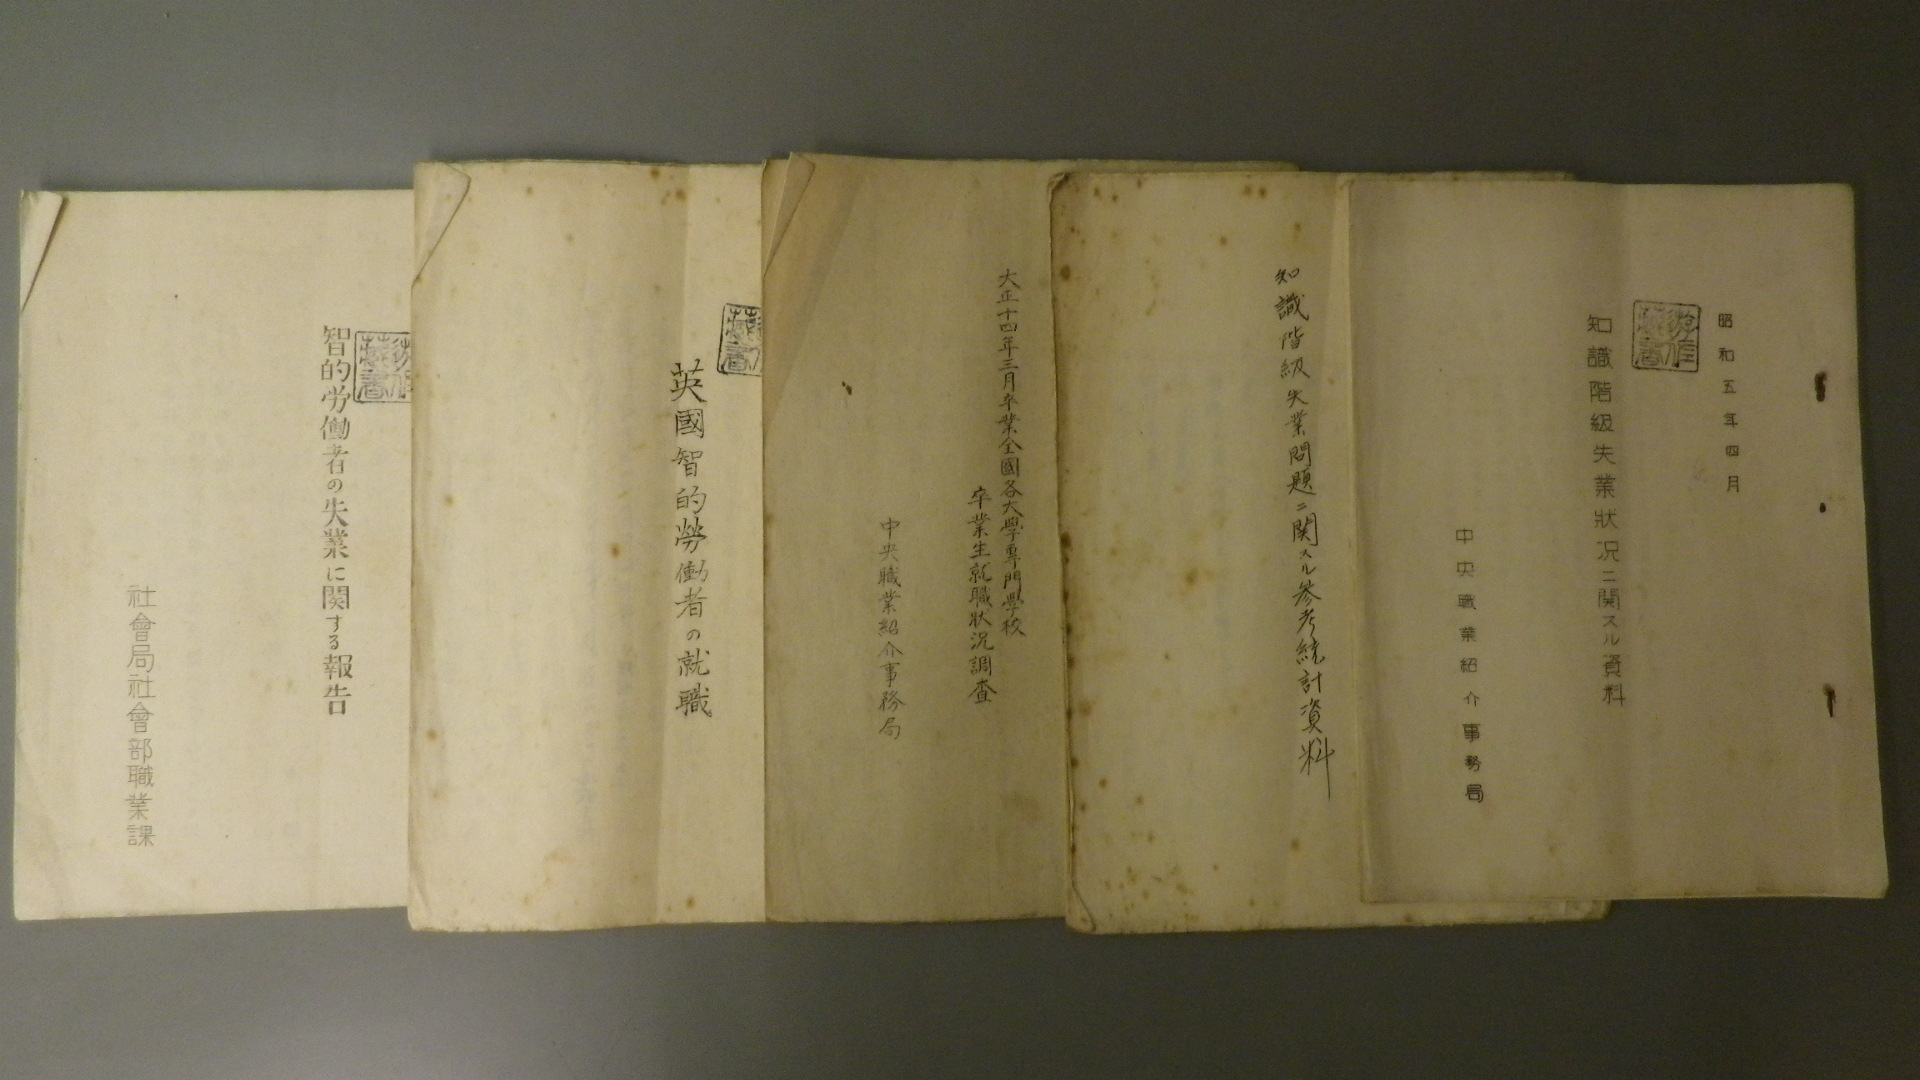 昭和五年四月
知識階級失業状況ニ関スル資料
中央職業紹介事務局
知識階級失業問題ニ関スル参考統計資料
大正十四年三月卒業全國各大學専門學校
卒業生就職状况調査
中央職業紹介事務局
英國智的勞働者の就職
智的労働者の失業に関する報告
社會局社會部職業課